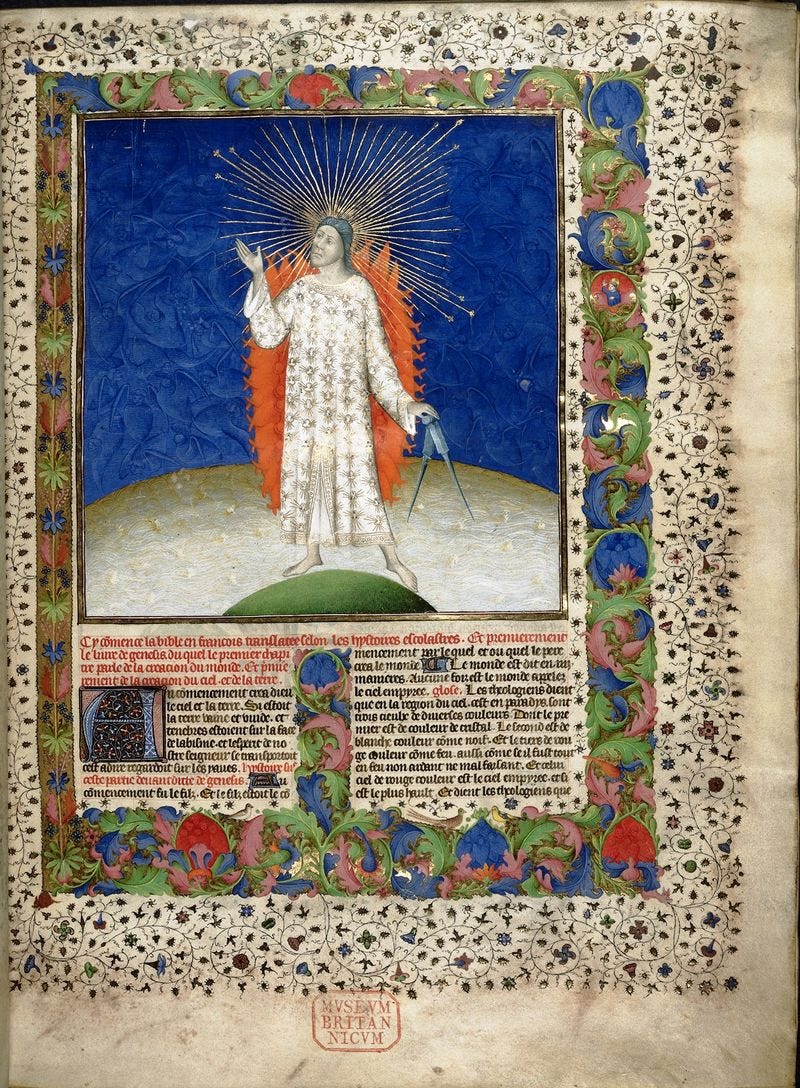 Cy cõmence la bible en francois translatee selon les hystoires escolastres. Et premierement
le liure de genesis du quel le premier chapi
tre parle de la creacion du monde. Et p̃mie
rement de la creacion du ciel. et de la terre.
Au cõmencement crea dieu
le ciel et la terre. Si estoit
la terre vaine et vuide. et
tenebres estoient sur la face
de labisme. et lesperit de no
stre seigneur se transportoit
cest adire regardoit sur les yaues. hystoire sur
ceste partie deuant ditte de genesis. Au
cõmencement fu le filz. Et le filz estoit le cõ
mencement par lequel et ou quel le pere
crea le monde. Le monde est dit en
manieres. Aucune foiz est le monde appelez
le ciel empyree. glose. Les theologiens dient
que en la region du ciel. cest en paradys. sont
trois cieulx de diuerses couleurs. Dont le pre
mier est de couleur de cristal. Le second est de
blanche couleur cõme noif. Et le tiers de rou
ge couleur cõme feu. aussi cõme se il fust tout
en feu. non ardant ne mal faisant. Et celui
ciel de rouge couleur est le ciel empyree. et si
est le plus hault. Et dient les theologiens que
MVSEVM
BRITAN
NICVM